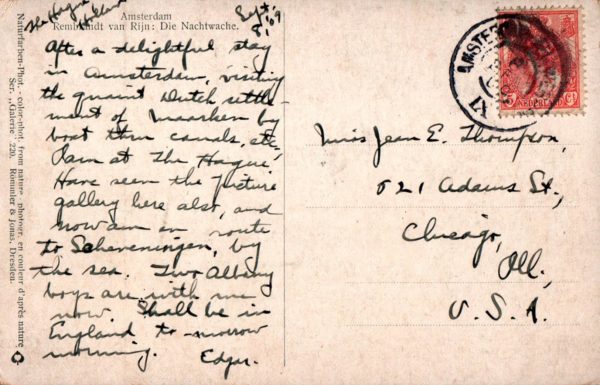 The Hague
Holland
Sept.
8, '09
Amsterdam
Rembrandt van Rijn: Die Nachtwache.
After a delightful stay
in Amsterdam, visiting
the quaint Dutch settle-
ment of Maarken by
boat thru canals, etc,
I am at The Hague.
Have seen the picture
gallery here also, and
now am en route
to Scheveningen, by
the sea. Two Albany
boys are with me
now. Shall be in
England to-morrow
morning.
Edgar.
Miss Jean E. Thompson,
521 Adams St.,
Chicago,
Ill.,
U. S. A.
AMSTERDAM
VI
5 NEDERLAND Ct
Naturfarben-Phot. - color-phot. from nature - photogr. en couleur d'après nature
Ser. „Galerie" 220. Römmler & Jonas, Dresden.